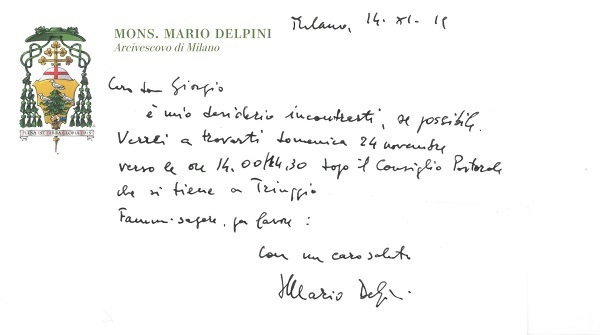 MONS. MARIO DELPINI
Arcivescovo di Milano
Milano, 14. XI. 19
Caro don Giorgio
è mio desiderio incontrarti, se possibile.
Verrei a trovarti domenica 24 novembre
verso le ore 14.00/14.30 dopo il Consiglio Pastorale
che si tiene a Triuggio
Fammi sapere, per favore :
con un caro saluto
+Mario Delpini